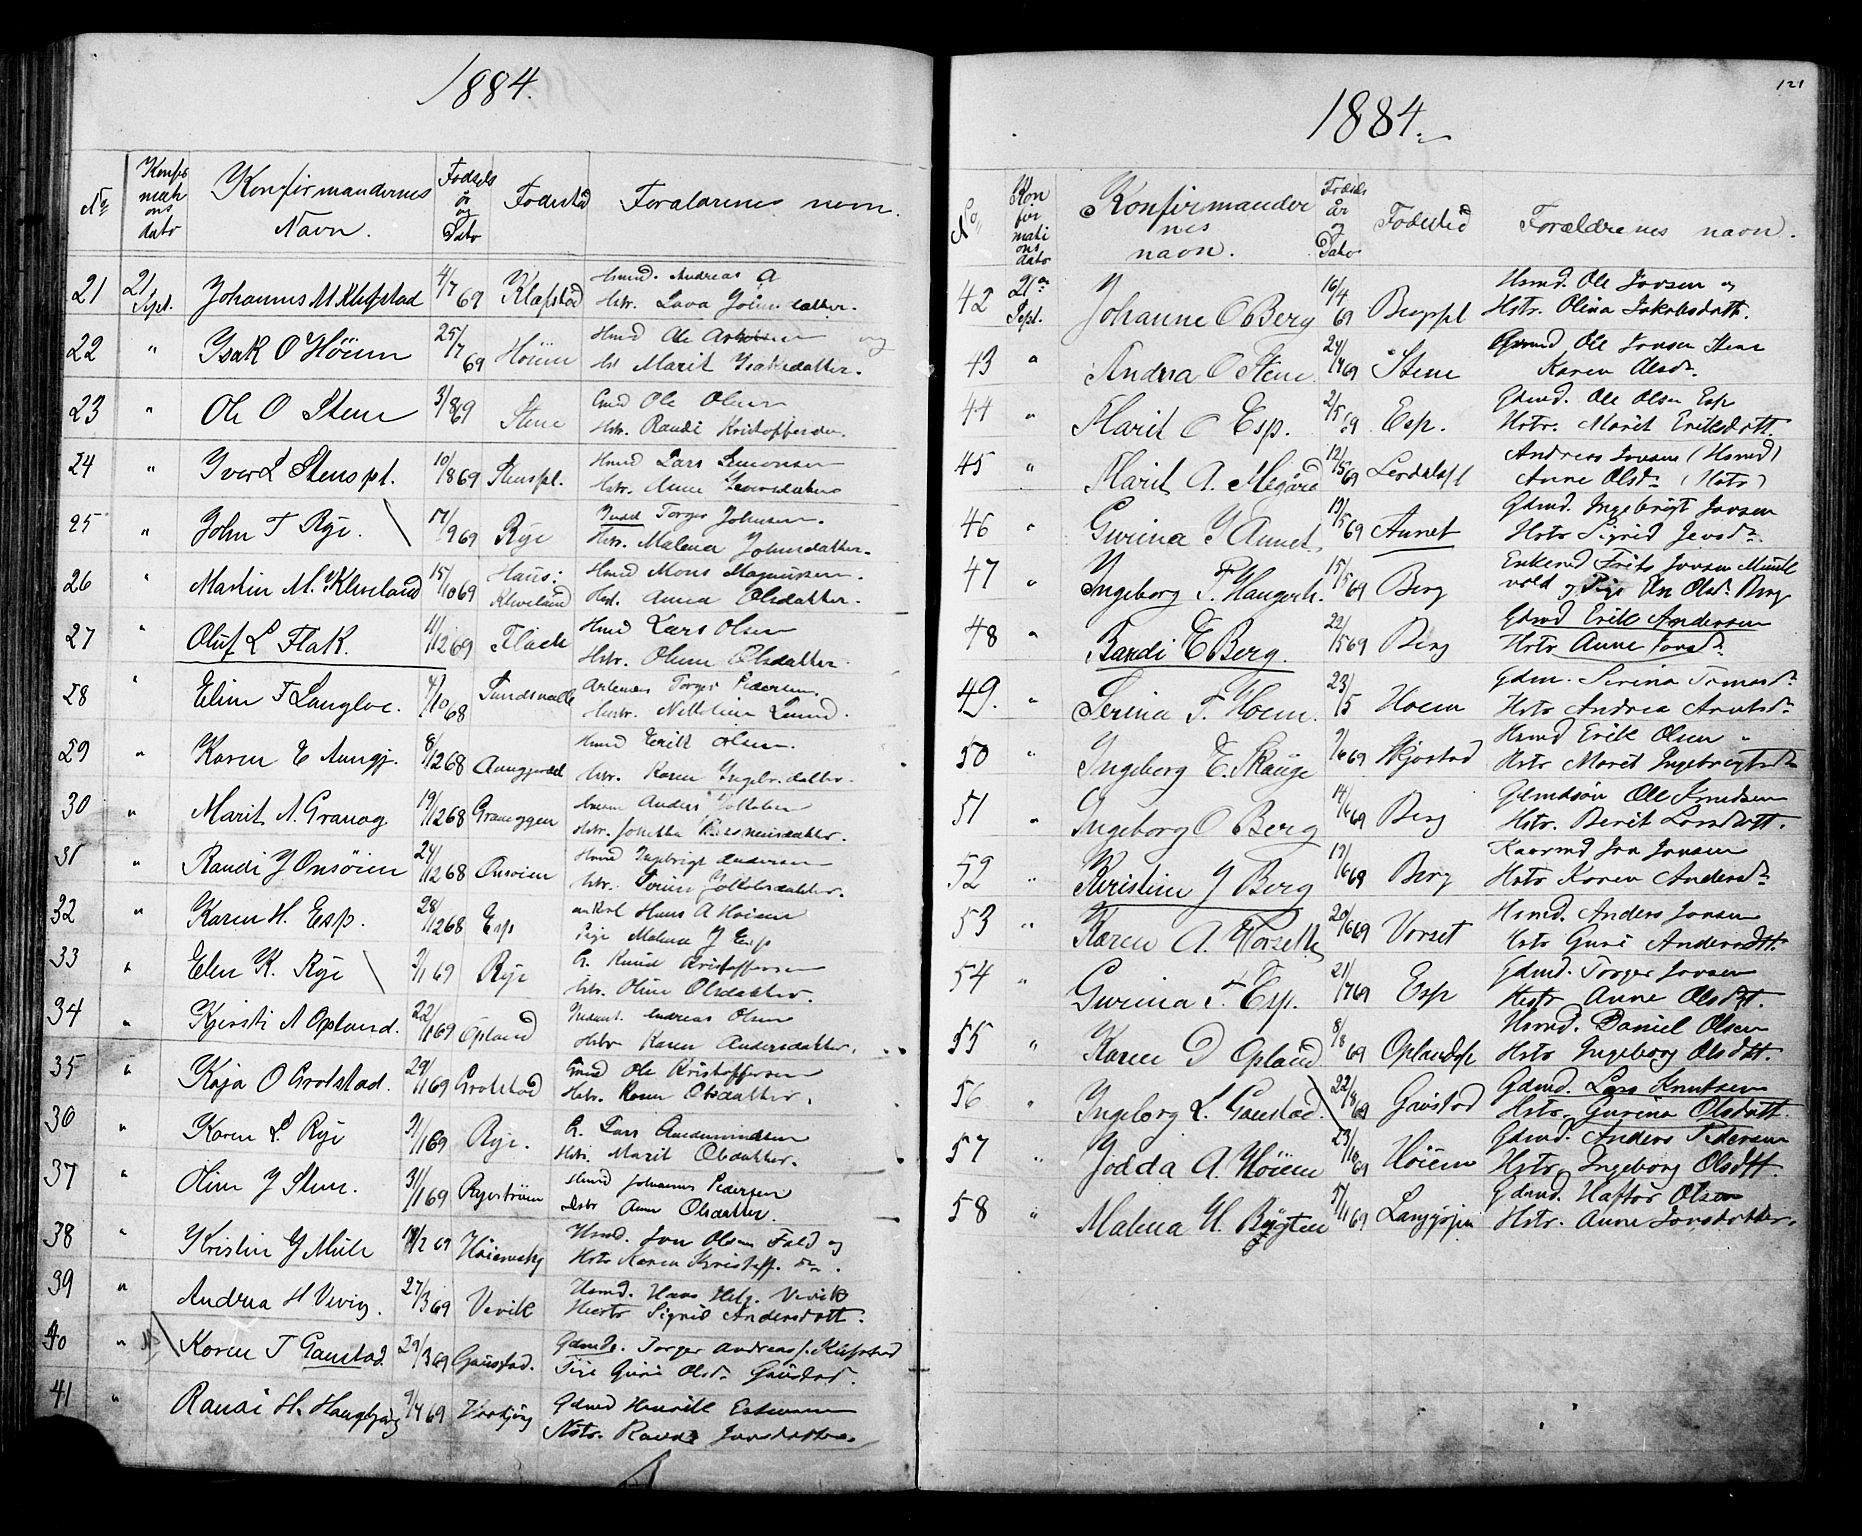 1884.
No
Konfir
mati
ons
dato
Konfirmandernes
Navn.
Fødsels
år
og
Dato
Fødested
Forældrenes navn.
21 21. Sept. Johannes M Klefstad 4/7 69 Klæfstad Hsmd. Andreas A
Hstr. Lava Johnsdatter.
22 " Isak O Höiem 25/7 69 Höiem Hsmd Ole og
Hst Marit Isaksdatter.
23 " Ole O Stene 3/8 69 Stene Gmd Ole Olsen
Hstr. Randi Kristoffersdr.
24 " Iver L Stenspl. 10/8 69 Stenspl. Hsmd Lars Simonsen
Hstr. Anne Iversdatter
25 " John T Rye. 17/9 69 Rye Torger Johnsen.
Hstr. Malena Johnsdatter.
26 " Martin M. Kleveland 15/10 69 Haus: Kleveland Hsmd Mons Magnussen.
Hst. Anna Olsdatter.
27 " Oluf L Flak. 4/12 69 Flack Hsmd Lars Olsen
Hstr. Oline Olsdatter.
28 " Eline T Langloe. 4/10 68 Torger Pedersen.
Hustr. Lund.
29 " Karen E Aungj. 8/12 68 Hsmd Erik Olsen.
hstr. Karen Ingebr.datter.
30 " Marit A. Granøg 19/12 68 Granøggen Anders
Hstr.
31 " Randi J Onsöien 24/12 68 Onsöien Hsmd Ingebrigt Andersen
hstr. Jakobsdatter.
32 " Karen H. Esp. 28/12 68 Esp ungkarl Hans A Höiem
Pige Malena J Esp
33 " Elen K. Rye 3/1 69 Rye G. Knud Kristoffersen
hstr. Oline Olsdatter.
34 " Kjersti A Opland. 22/1 69 Opland Andreas Olsen
Hstr Karen Andersdatter.
35 " Kaja O Grolstad. 29/1 69 Grolstad Gmd Ole Kristoffersen
Hstr. Karen Olsdatter.
36 " Karen L. Rye 31/1 69 Rye. G. Lars Amundsen
Hstr. Marit Olsdatter.
37 " Oline J Stene. 31/1 69 Ryeströen Hsmd Johannes Pedersen
Hstr Anne Olsdatter.
38 " Kristin J Mule 18/2 69 Hsmd. Jon Olsen Fald og
Hstr Karen Kristoff. dr.
39 " Andrea H Vevig. 27/3 69 Vevik Hsmd. Hans Helg. Vevik
Hustr Sigrid Andersdatt.
40 " Karen T Gaustad. 29/3 69 Gaustad. Torger Andreas
Pige Guri Olsdr Gaustad.
41 " Randi H. Haugbjørg 9/4 69 Gdmd Henrik Estensen
Hstr. Randi Jonsdatter.
121
1884.
No
Kon
fir
mati
ons
dato
Konfirmander
nes
navn.
Fødsels
år
og
Dato
Fødested
Forældrenes navn.
42 21de Sept. Johanne O Berg 16/4 69 Bergspl Hsmd. Ole Jonsen og
Hstr. Olina Jakobsdatt.
43 " Andrea O Stene 24/4 69 Stene Gmd Ole Jonsen Stene
Karen Olsdr.
44 " Marit O Esp. 2/5 69 Esp. Gdmd. Ole Olsen Esp
Hstr. Marit Eriksdatt.
45 " Marit A. Megård 12/5 69 Lerdalspl Andreas Jonsen (Hsmd)
Anne Olsdr (Hstr)
46 " Gurina I Aunet, 13/5 69 Aunet Gdmd. Ingebrigt Jonsen
Hstr Sigrid Jensdr.
47 " Ingeborg F. Haugerh. 15/5 69 Berg Enkemd Frits Jonsen
vold og Pige Elen Olsdr Berg
48 " Randi E Berg. 22/5 69 Berg Gdmd Erik Andersen
Hstr Anne Jonsdr.
49. " Serina T. Hoem. 23/5 Hoem Gdm.
Hstr Andrea Arntsdr
50 " Ingeborg E. Skauge 2/6 69 Skjøstad Hsmd Erik Olsen "
Hstr Marit Ingebrigtsdr
51 " Ingeborg O Berg 14/6 69 Berg Gdmdsön Ole Knudsen
Hstr. Berit Larsdatt.
52 " Kristine J Berg 19/6 69 Berg Kaarmd Jon Jonsen
Hstr Karen Andersdr
53 " Karen A. Vorseth 20/6 69 Vorset Hsmd. Anders Jonsen
Hstr Guri Andersdtt.
54 " Gurina T Esp. 21/7 69 Esp Gdmd. Torger Jonsen
Hustr Anne Olsdtt.
55 " Karen D Opland 8/8 69 Oplandspl Hsmd. Daniel Olsen
Hstr Ingeborg Olsdtt.
56 " Ingeborg L. Gaustad. 22/8 69 Gaustad Gdmd. Lars Knutsen
Hstr. Gurina Olsdatt.
57 " Jodda A. Höiem 23/10 69 Höiem Gdmd. Anders Pedersen
Hstr Ingeborg Olsdtt.
58 " Malena H. Bøgten 5/11 69 Gdmd. Haftor Olsen
Hstr. Anne Jonsdatter.